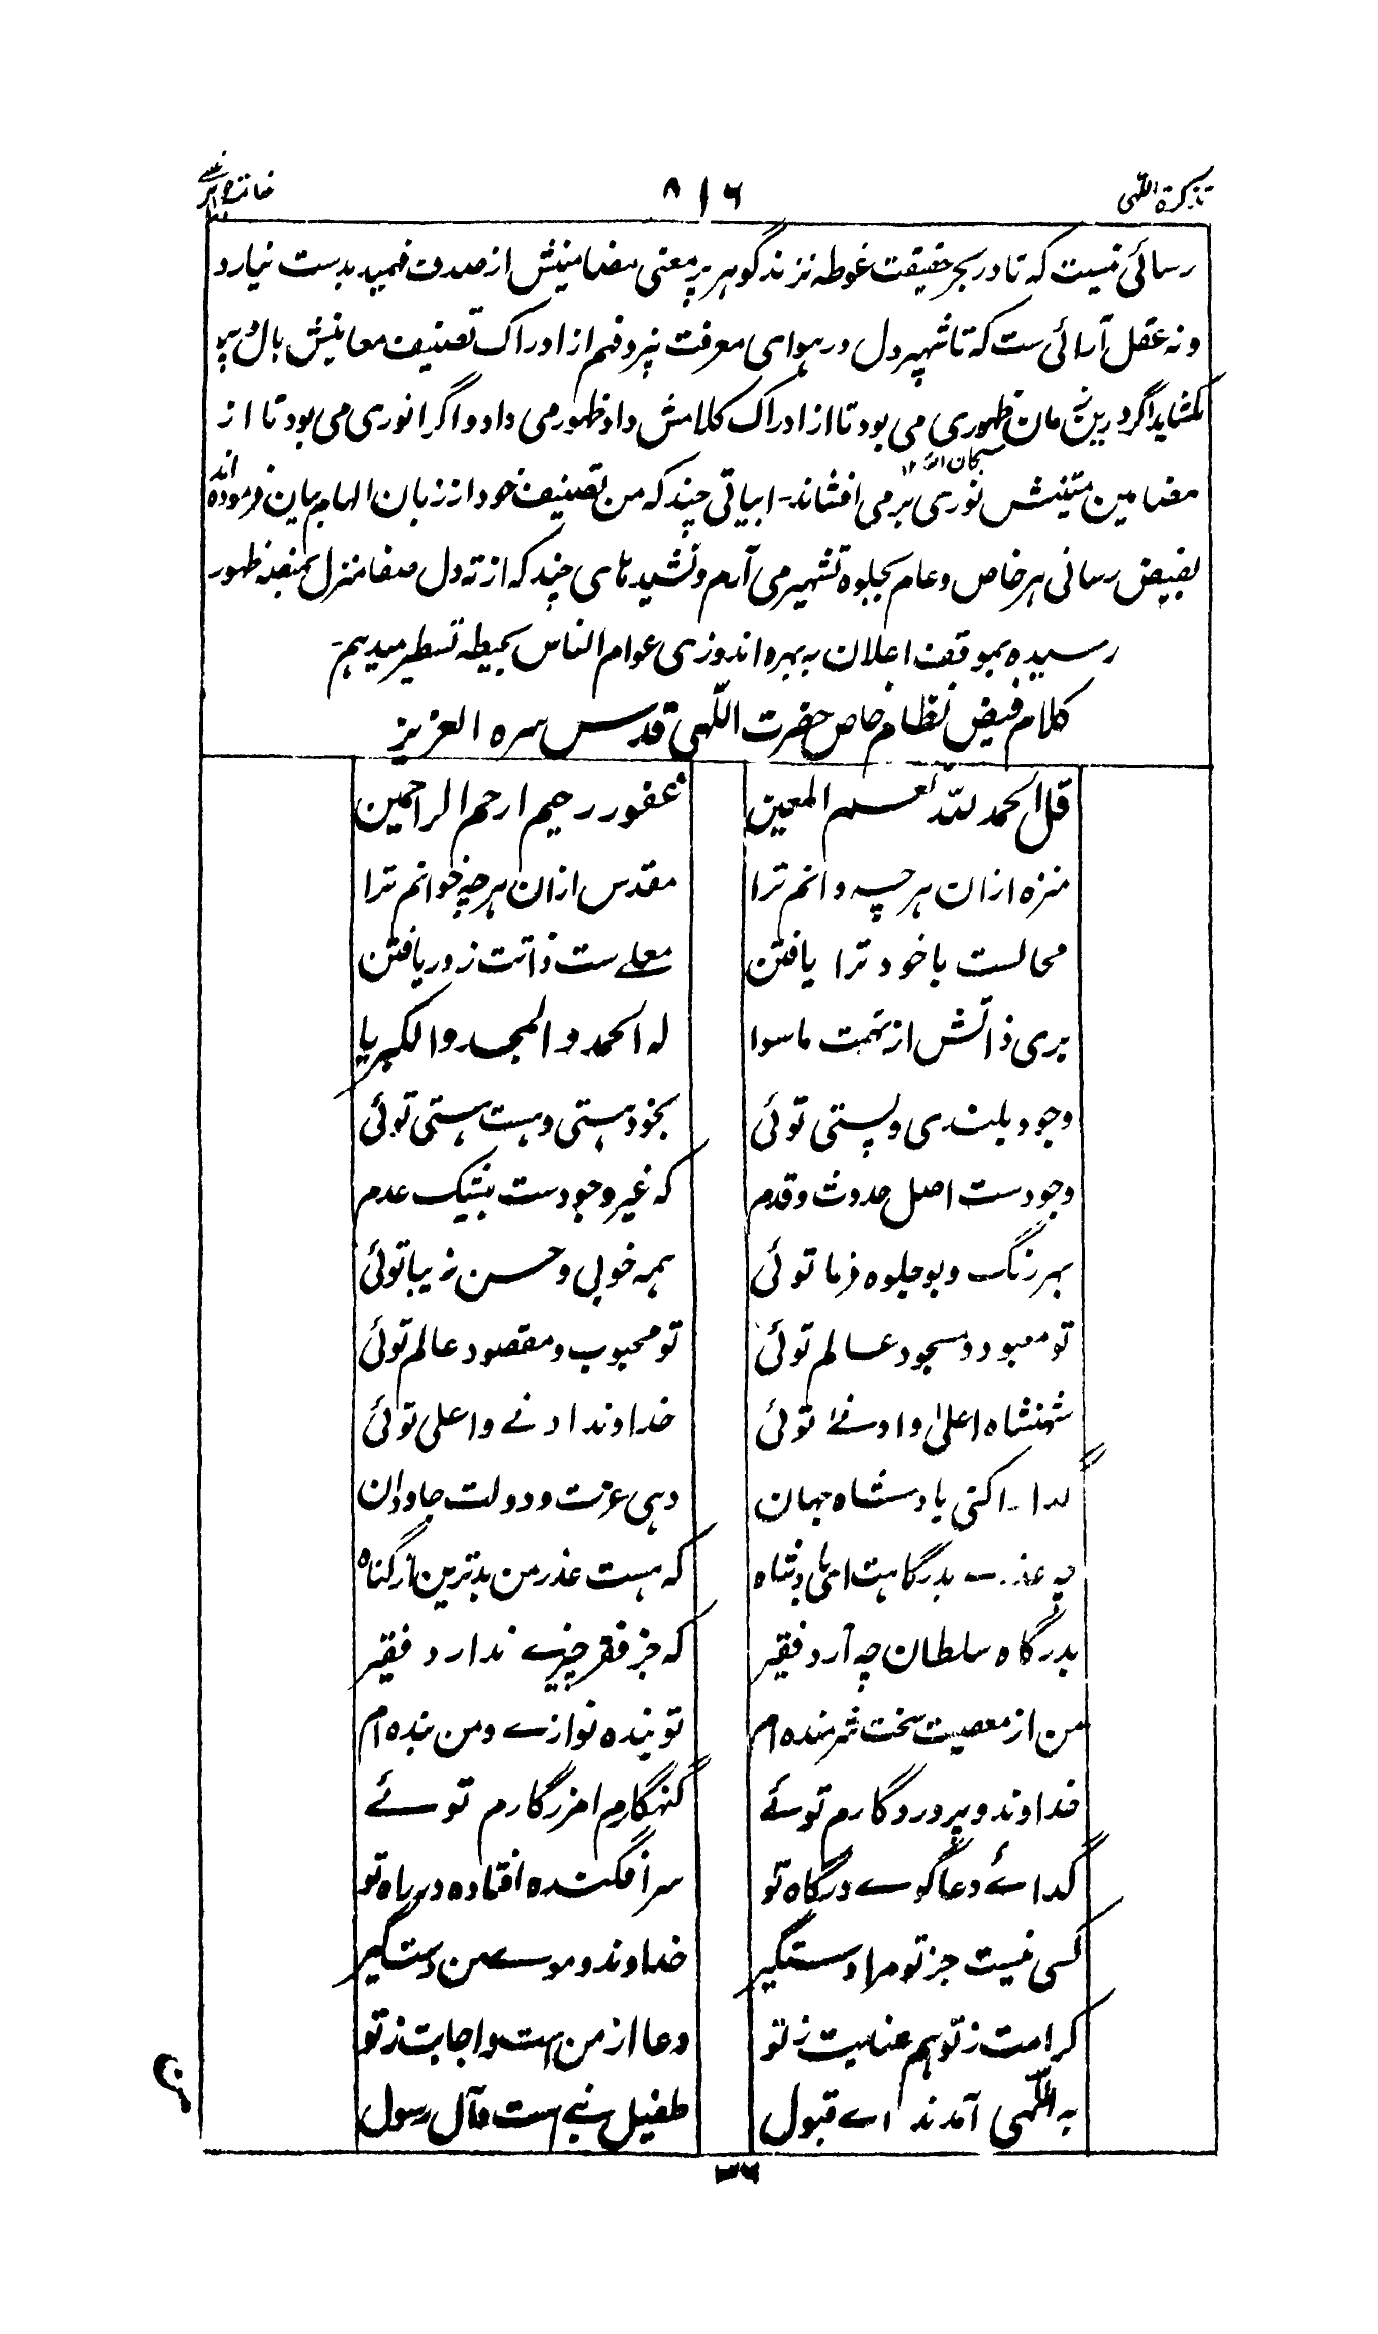 تذکرۃ اللّٰہی ۸۱۶
رسائی نیست کہ تا در بحر حقیقت غوطہ نزند گوہر پر معنی مضامینش از صدف فہمید بدست نیارد
و نہ عقل آرائی ست کہ تا شہپر دل در ہوای معرفت نپرد فہم از ادراک تصنیف معانیش بال و پر
بکشاید اگر درین زمان ظہوری می بود تا از ادراک کلامش داد ظہور می داد و اگر انوری می بود تا از
سبحان اللہ ۱۲
مضامین متینش نوری بر می افشاند۔ ابیاتی چند کہ من تصنیف خود از زبان الہام بیان فرمودہ اند
بفیض رسانی ہر خاص و عام بجلوہ تشہیر می آرم و نشید ہای چند کہ از تہ دل صفا منزل بمنصہ ظہور
رسیدہ بموقف اعلان بہ بہرہ اندوزی عوام الناس بحیطہ تسطیر میدہم۔
کلام فیض نظام خاص حضرت اللّٰہی قدس سرہ العزیز
قل الحمد للہ نعم المعین غفور رحیم ارحم الراحمین
منزہ ازان ہر چہ دانم ترا مقدس ازان ہر چہ خوانم ترا
محالست با خود ترا یافتن معلے ست ذاتت ز دریافتن
بری ذاتش از تہمت ماسوا لہ الحمد و المجد و الکبریا
وجود بلندی و پستی توئی بخود ہستی و ہست ہستی توئی
وجودست اصل حدوث و قدم کہ غیر وجودست بیشک عدم
بہر رنگ و بو جلوہ فرما توئی ہمہ خوبی و حسن زیبا توئی
تو معبود و مسجود عالم توئی تو محبوب و مقصود عالم توئی
شہنشاہ اعلیٰ و ادنےٰ توئی خداوند ادنے و اعلی توئی
گدا را کنی پادشاہ جہان دہی عزت و دولت جاودان
چہ عذر بدرگاہت ای پادشاہ کہ ہست عذر من بدترین از گناہ
بدرگاہ سلطان چہ آرد فقیر کہ جز فقر چیزے ندارد فقیر
من از معصیت سخت شرمندہ ام تو بندہ نوازے و من بندہ ام
خداوند و پروردگارم توئے گنہگارم امرزگارم توئے
گدائے دعا گوے درگاہ تو سر افگندہ افتادہ در راہ تو
کسی نیست جز تو مرا دستگیر خداوند و مولے من دستگیر
کرامت ز تو ہم عنایت ز تو دعا از من است و اجابت ز تو
بہ اللّٰہی آمدند اے قبول طفیل نبے است و آل رسول